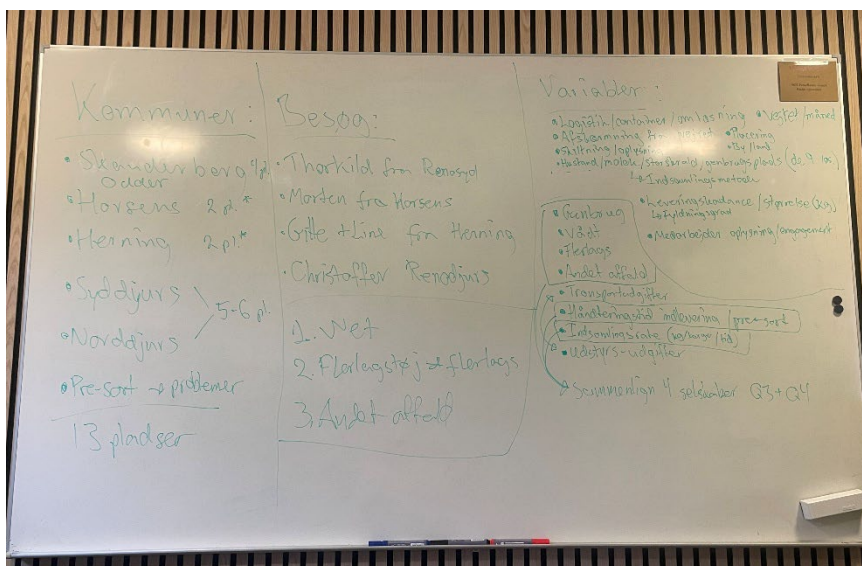 Kommuner:
• Skanderborg 4 pl.
Odder
• Horsens 2 pl.*
• Herning 2 pl.*
• Syddjurs
5-6 pl.
• Norddjurs
• Pre-sort → problemer
13 pladser
Besøg:
• Thorkild fra Renosyd
• Morten fra Horsens
• Gitte + Line fra Herning
• Christoffer Renodjurs
1. Wet
2. Flerlagstøj → flerlags
3. Andet affald
Variabler:
• Logistik/container/omlæsning
• Vejret/måned
• Afskærmning fra vejret
• Placering
• Skiltning/oplysning
• By/land
• Husstand/molok/storskrald/genbrugsplads (de 9 )
↳ Indsamlingsmetode
• Leveringskadance/størrelse (kg)
↳ Fyldningsgrad
• Medarbejder oplysning/engagement
• Genbrug
• Vådt
• Flerlags
• Andet affald
• Transportudgifter
• Håndteringstid indlevering/pre-sort
• Indsamlingsrate
• Udstyrs-udgifter
• Sammenlign 4 selskaber Q3+Q4